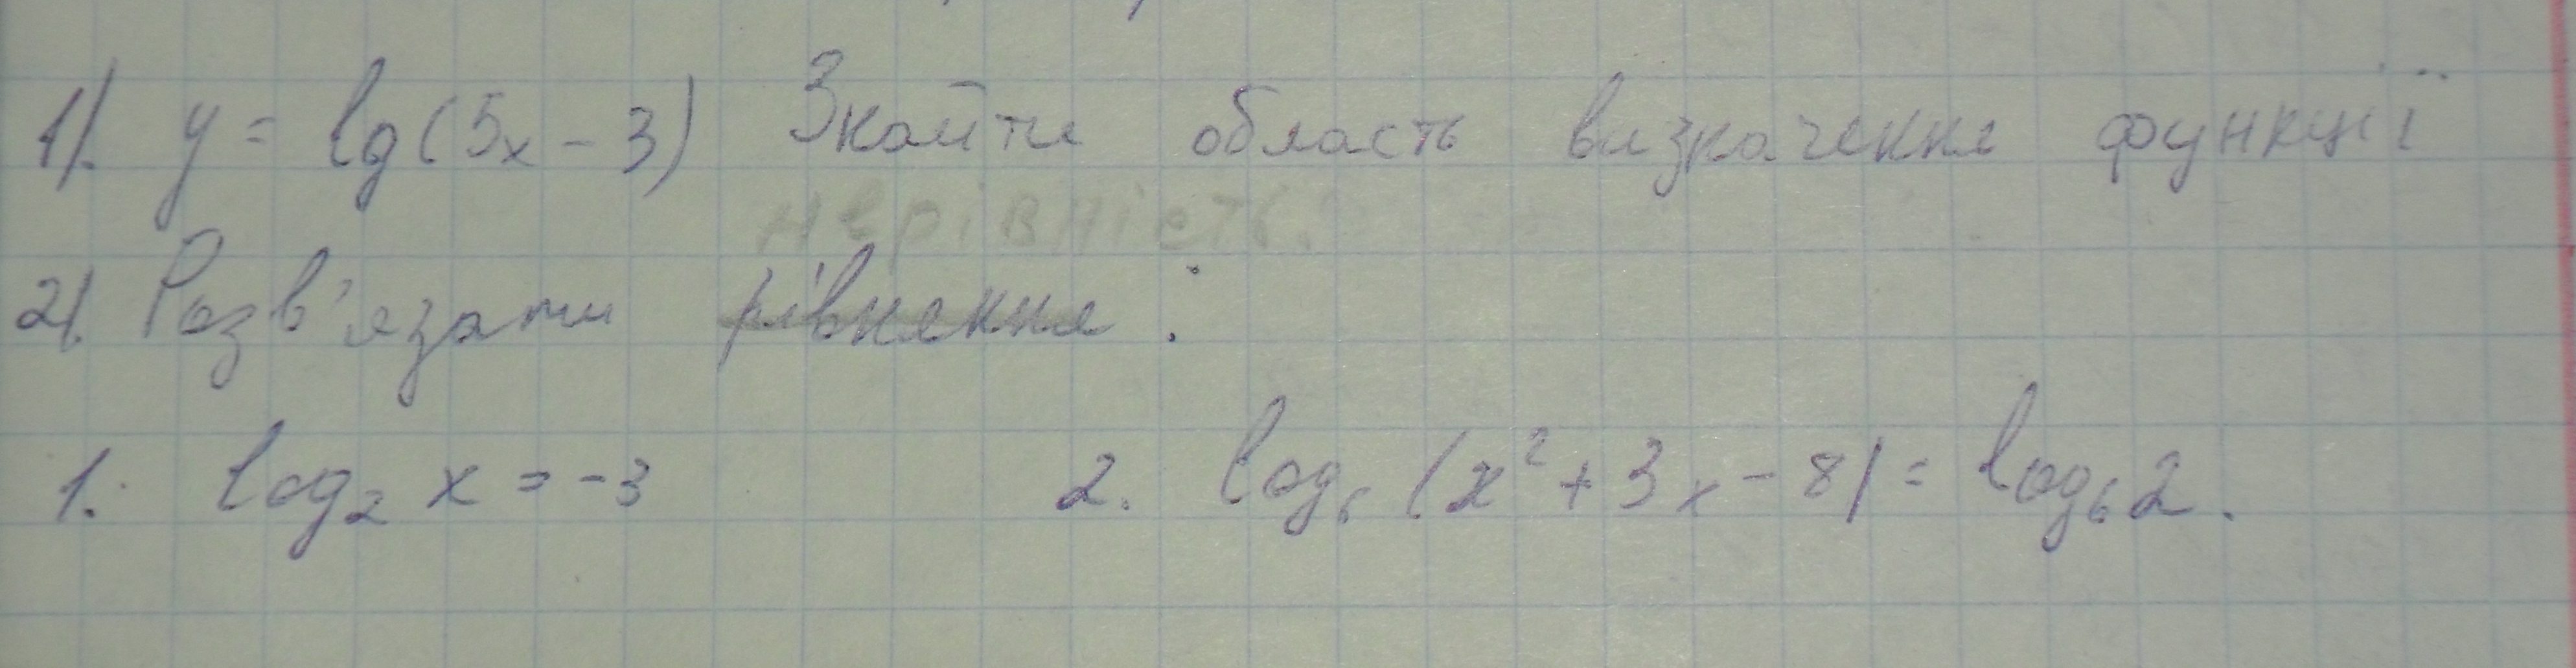 1). y = lg(5x - 3) Знайти область визначення функції
нерівність:
2). Розв'язати рівняння:
1. log₂ x = -3 2. log₆ (x² + 3x - 8) = log₆ 2.